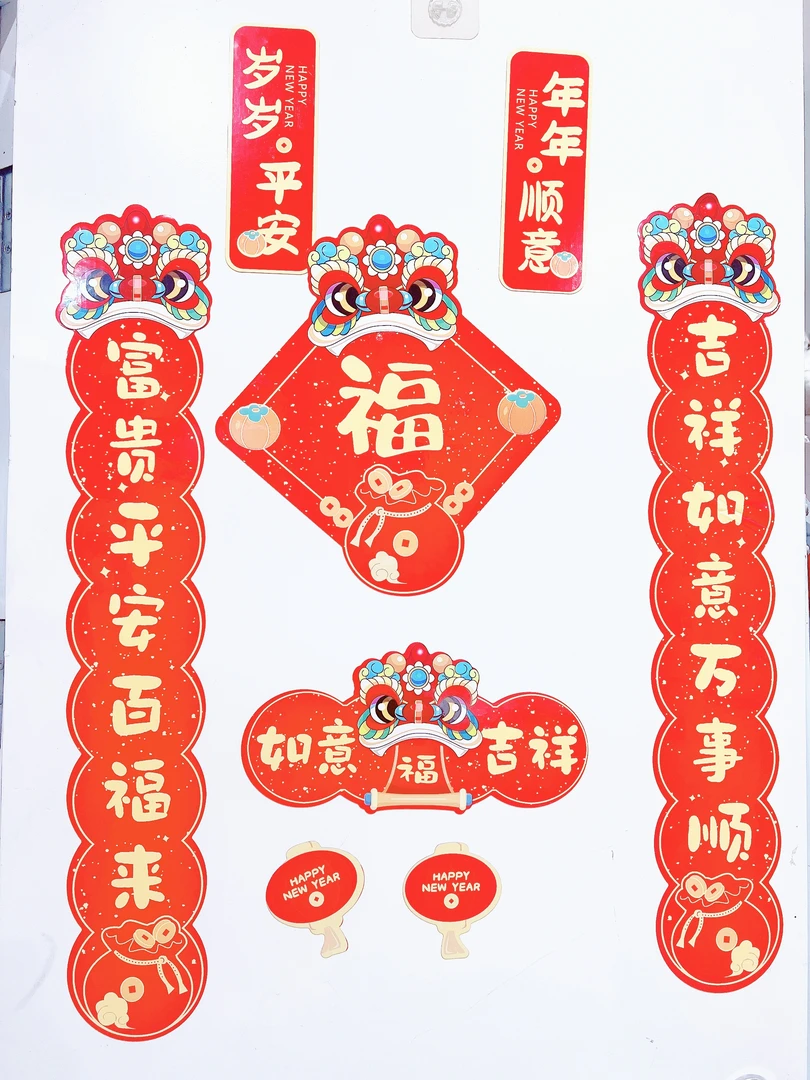 岁岁平安
HAPPY
NEW YEAR
年年顺意
HAPPY
NEW YEAR
富贵平安百福来
福
吉祥如意万事顺
如意
福
吉祥
HAPPY
NEW YEAR
HAPPY
NEW YEAR